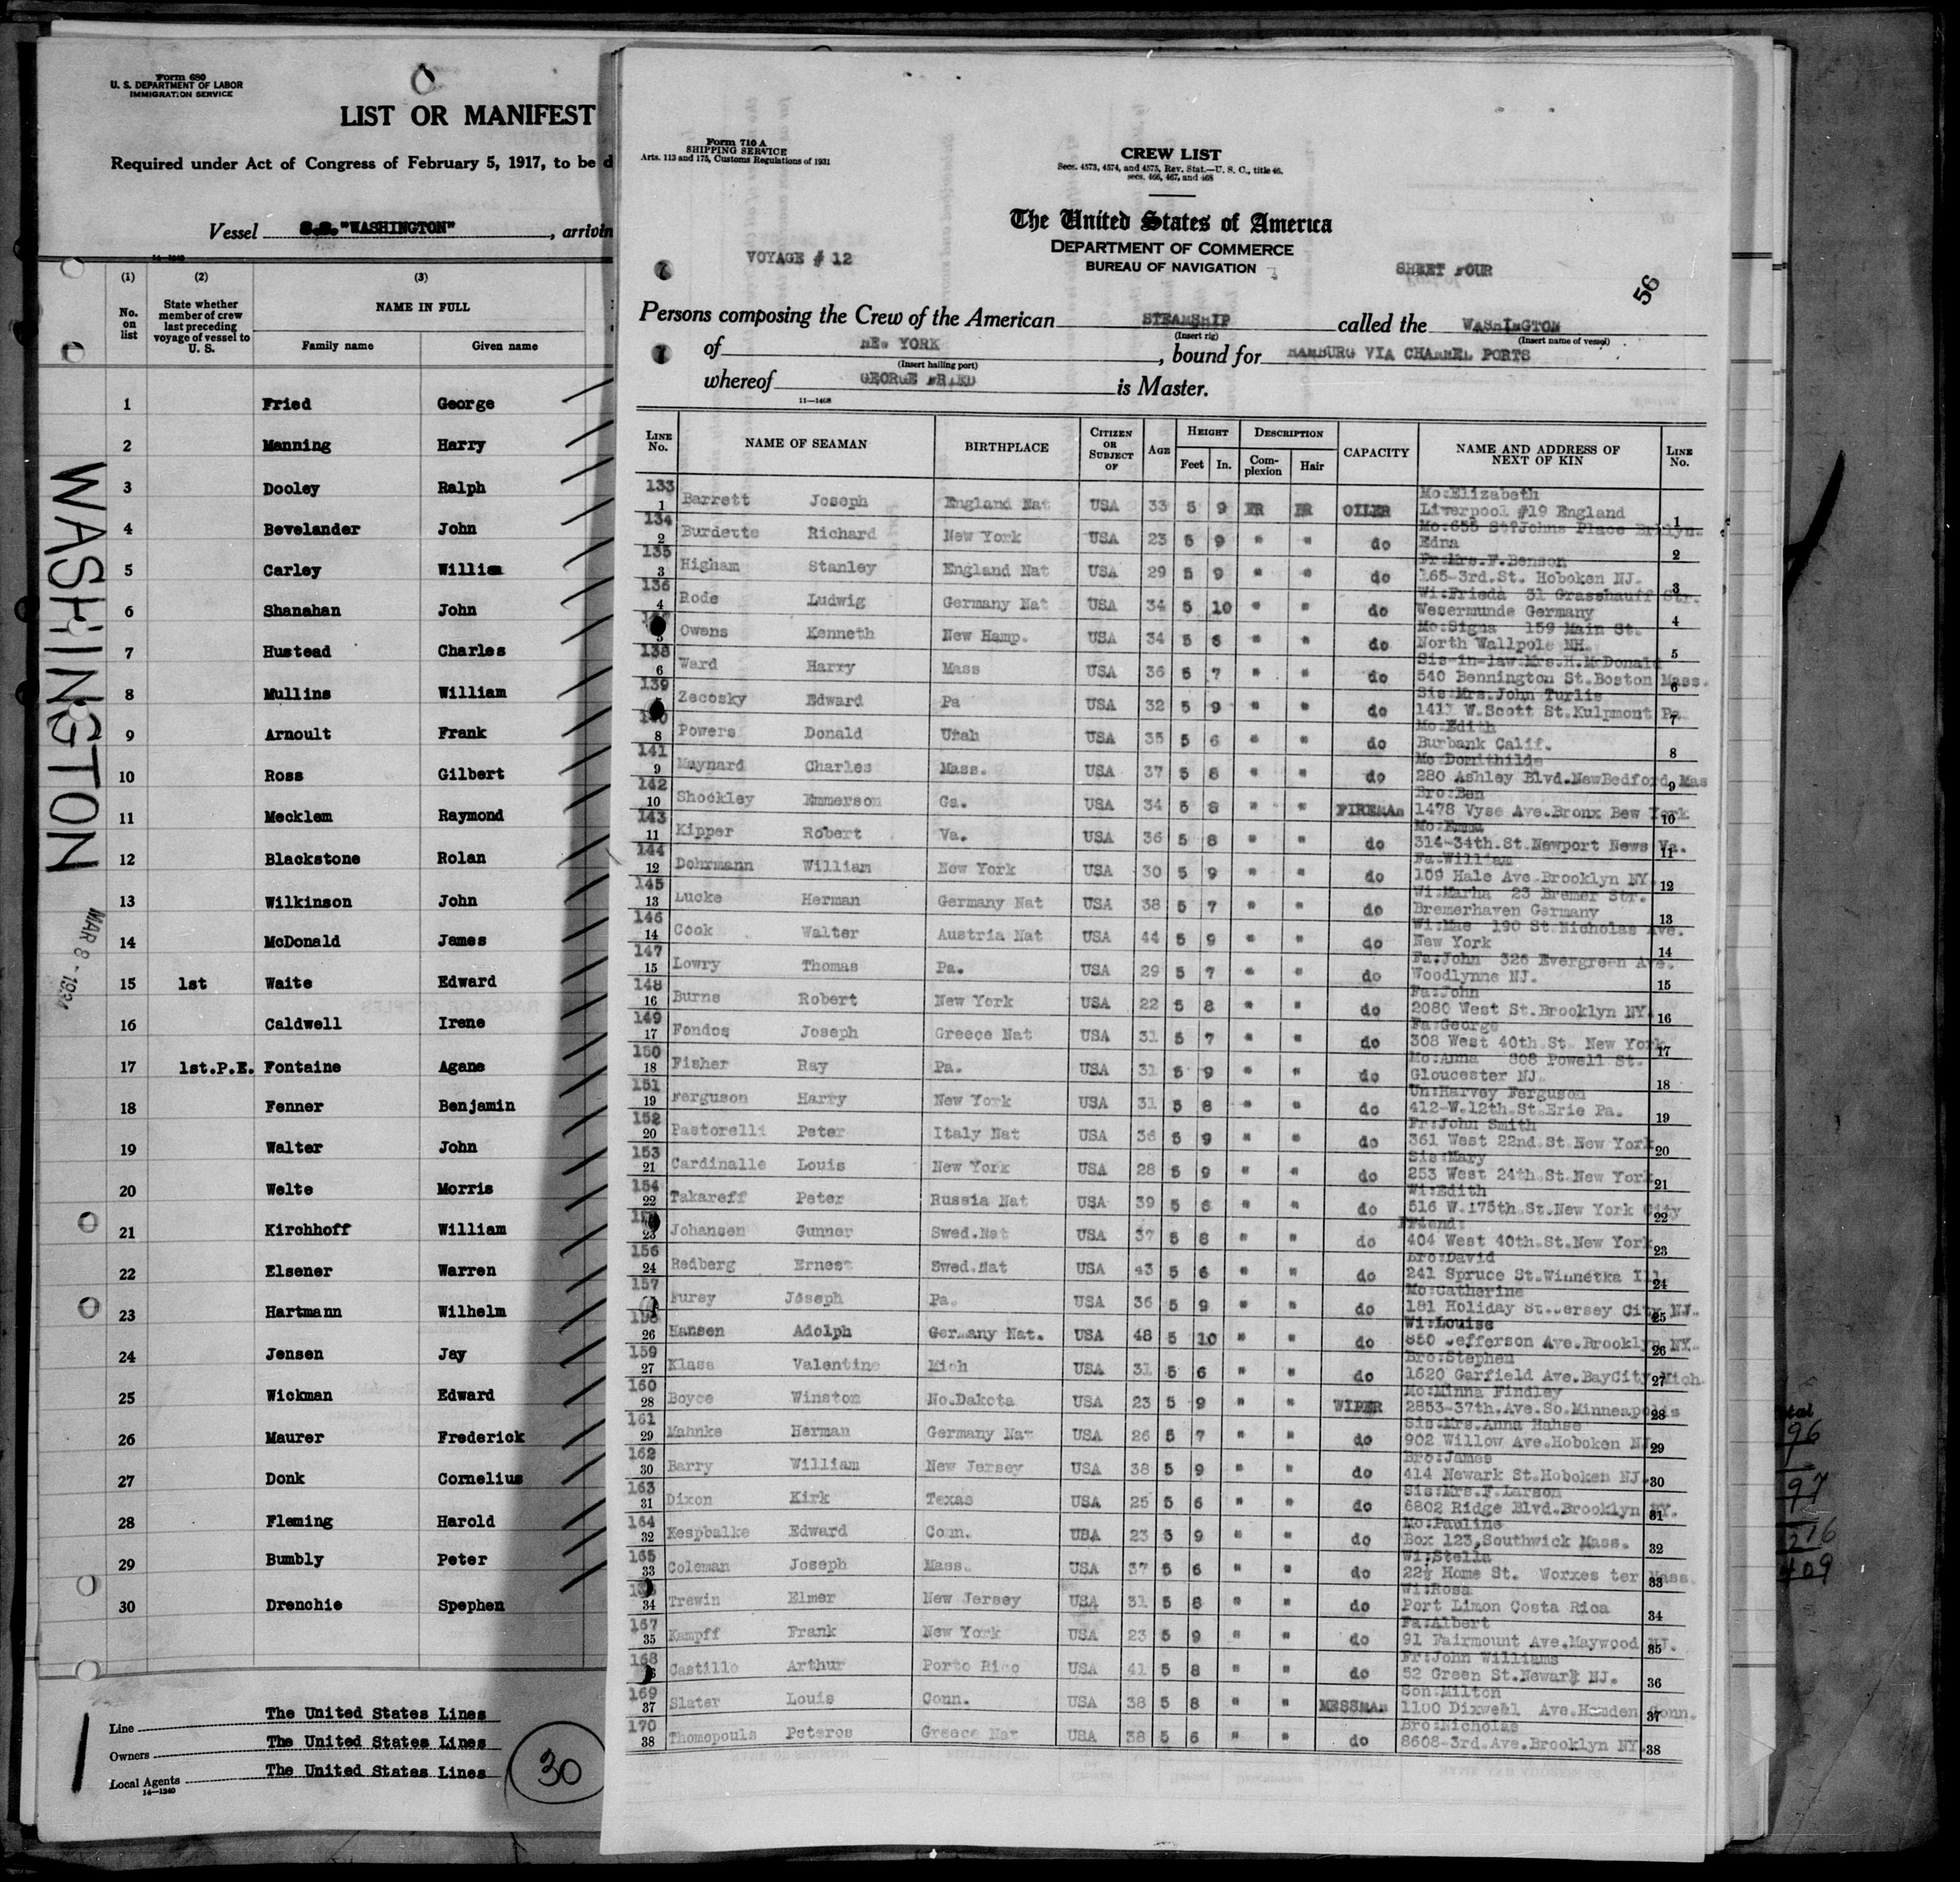 Form 680
U. S. DEPARTMENT OF LABOR
IMMIGRATION SERVICE
LIST OR MANIFEST
Required under Act of Congress of February 5, 1917, to be d
Vessel S.S. "WASHINGTON", arrivin
14—1240
(1) (2) (3)
No. on list
State whether member of crew last preceding voyage of vessel to U. S.
NAME IN FULL
Family name Given name
1 Fried George
2 Manning Harry
3 Dooley Ralph
4 Bevelander John
5 Carley William
6 Shanahan John
7 Hustead Charles
8 Mullins William
9 Arnoult Frank
10 Ross Gilbert
11 Mecklem Raymond
12 Blackstone Rolan
13 Wilkinson John
14 McDonald James
15 1st Waite Edward
16 Caldwell Irene
17 1st.P.E. Fontaine Agane
18 Fenner Benjamin
19 Walter John
20 Welte Morris
21 Kirchhoff William
22 Elsener Warren
23 Hartmann Wilhelm
24 Jensen Jay
25 Wickman Edward
26 Maurer Frederick
27 Donk Cornelius
28 Fleming Harold
29 Bumbly Peter
30 Drenchie Spephen
Line The United States Lines
Owners The United States Lines
Local Agents The United States Lines
14—1240
30
WASHINGTON
MAR 8 - 1934
Form 710 A
SHIPPING SERVICE
Arts. 113 and 175, Customs Regulations of 1931
CREW LIST
Secs. 4573, 4574, and 4575, Rev. Stat.—U. S. C., title 46,
secs. 466, 467, and 468
The United States of America
DEPARTMENT OF COMMERCE
BUREAU OF NAVIGATION
VOYAGE # 12
SHEET FOUR
56
Persons composing the Crew of the American STEAMSHIP called the WASHINGTON
(Insert rig) (Insert name of vessel)
of NEW YORK, bound for HAMBURG VIA CHANNEL PORTS
(Insert hailing port)
whereof GEORGE FRIED is Master.
11—1408
LINE No. NAME OF SEAMAN BIRTHPLACE CITIZEN OR SUBJECT OF AGE HEIGHT Feet In. DESCRIPTION Complexion Hair CAPACITY NAME AND ADDRESS OF NEXT OF KIN LINE No.
133 Mo:Elizabeth
1 Barrett Joseph England Nat USA 33 5 9 FR FR OILER Liverpool #19 England 1
134 Mo:655 St Johns Place Brklyn.
2 Burdette Richard New York USA 23 5 9 " " do Edna 2
135 Fr:Mrs.F.Benson
3 Higham Stanley England Nat USA 29 5 9 " " do 165-3rd.St. Hoboken NJ. 3
136 Wi:Frieda 31 Grasshauff Str.
4 Rode Ludwig Germany Nat USA 34 5 10 " " do Wesermunde Germany 4
Mo:Signa 159 Main St.
5 Owens Kenneth New Hamp. USA 34 5 8 " " do North Walpole NH. 5
138 Sis-in-law:Mrs.H.McDonald
6 Ward Harry Mass USA 36 5 7 " " do 540 Bennington St.Boston Mass. 6
139 Sis:Mrs.John Turlis
Zecosky Edward Pa USA 32 5 9 " " do 1411 W.Scott St.Kulpmont Pa 7
140 Mo:Edith
8 Powers Donald Utah USA 35 5 6 " " do Burbank Calif. 8
141 Mo:Domithilde
9 Maynard Charles Mass. USA 37 5 8 " " do 280 Ashley Blvd.NewBedford Mas 9
142 Bro:Ben
10 Shockley Emmerson Ga. USA 34 5 8 " " FIREMAN 1478 Vyse Ave.Bronx Bew York 10
143 Mo:Emma
11 Kipper Robert Va. USA 36 5 8 " " do 314-34th.St.Newport News Va. 11
144 Fa:William
12 Dohrmann William New York USA 30 5 9 " " do 109 Hale Ave.Brooklyn NY. 12
145 Wi:Marha 23 Bremer Str.
13 Lucke Herman Germany Nat USA 38 5 7 " " do Bremerhaven Germany 13
146 Wi:Mae 190 St.Nicholas Ave.
14 Cook Walter Austria Nat USA 44 5 9 " " do New York 14
147 Fa:John 326 Evergreen Ave.
15 Lowry Thomas Pa. USA 29 5 7 " " do Woodlynne NJ. 15
148 Fa:John
16 Burns Robert New York USA 22 5 8 " " do 2080 West St.Brooklyn NY. 16
149 Fa:George
17 Fondos Joseph Greece Nat USA 31 5 7 " " do 308 West 40th.St. New York 17
150 Mo:Anna 808 Powell St.
18 Fisher Ray Pa. USA 31 5 9 " " do Gloucester NJ. 18
151 Un:Harvey Ferguson
19 Ferguson Harry New York USA 31 5 8 " " do 412-W.12th.St.Erie Pa. 19
152 Fr:John Smith
20 Pastorelli Peter Italy Nat USA 36 5 9 " " do 361 West 22nd.St New York 20
153 Sis:Mary
21 Cardinalle Louis New York USA 28 5 9 " " do 253 West 24th.St.New York 21
154 Wi:Edith
22 Takareff Peter Russia Nat USA 39 5 6 " " do 516 W.175th.St.New York City 22
Friend:
23 Johansen Gunner Swed.Nat USA 37 5 8 " " do 404 West 40th.St.New York 23
156 Bro:David
24 Redberg Ernest Swed.Nat USA 43 5 6 " " do 241 Spruce St.Winnetka Ill 24
157 Mo:Catherine
Furey Joseph Pa. USA 36 5 9 " " do 181 Holiday St.Jersey City NJ. 25
158 Wi:Louise
26 Hansen Adolph Germany Nat. USA 48 5 10 " " do 850 Jefferson Ave.Brooklyn NY. 26
159 Bro:Stephen
27 Klass Valentine Mich USA 31 5 6 " " do 1620 Garfield Ave.BayCity Mich. 27
160 Mo:Minna Findley
28 Boyce Winston No.Dakota USA 23 5 9 " " WIPER 2853-37th.Ave.So.Minneapolis 28
161 Sis:Mrs.Anna Hahse
29 Mahnke Herman Germany Nat USA 26 5 7 " " do 902 Willow Ave.Hoboken NJ 29
162 Bro:James
30 Barry William New Jersey USA 38 5 9 " " do 414 Newark St.Hoboken NJ. 30
163 Sis:Mrs.F.Larson
31 Dixon Kirk Texas USA 25 5 6 " " do 6802 Ridge Blvd.Brooklyn NY. 31
164 Mo:Pauline
32 Kespbalke Edward Conn. USA 23 5 9 " " do Box 123,Southwick Mass. 32
165 Wi:Stella
33 Coleman Joseph Mass. USA 37 5 6 " " do 22½ Home St. Worxes ter Mass. 33
Wi:Rosa
34 Trewin Elmer New Jersey USA 31 5 8 " " do Port Limon Costa Rica 34
167 Fa:Albert
35 Kampff Frank New York USA 23 5 9 " " do 91 Fairmount Ave.Maywood NJ. 35
168 Fr:John Williams
Castillo Arthur Porto Rico USA 41 5 8 " " do 52 Green St.Newark NJ. 36
169 Son:Milton
37 Slater Louis Conn. USA 38 5 8 " " MESSMAN 1100 Dixwell Ave.Hamden Conn. 37
170 Bro:Nicholas
38 Thomopouls Peteros Greece Nat USA 38 5 6 " " do 8608-3rd.Ave.Brooklyn NY. 38
96
97
216
409